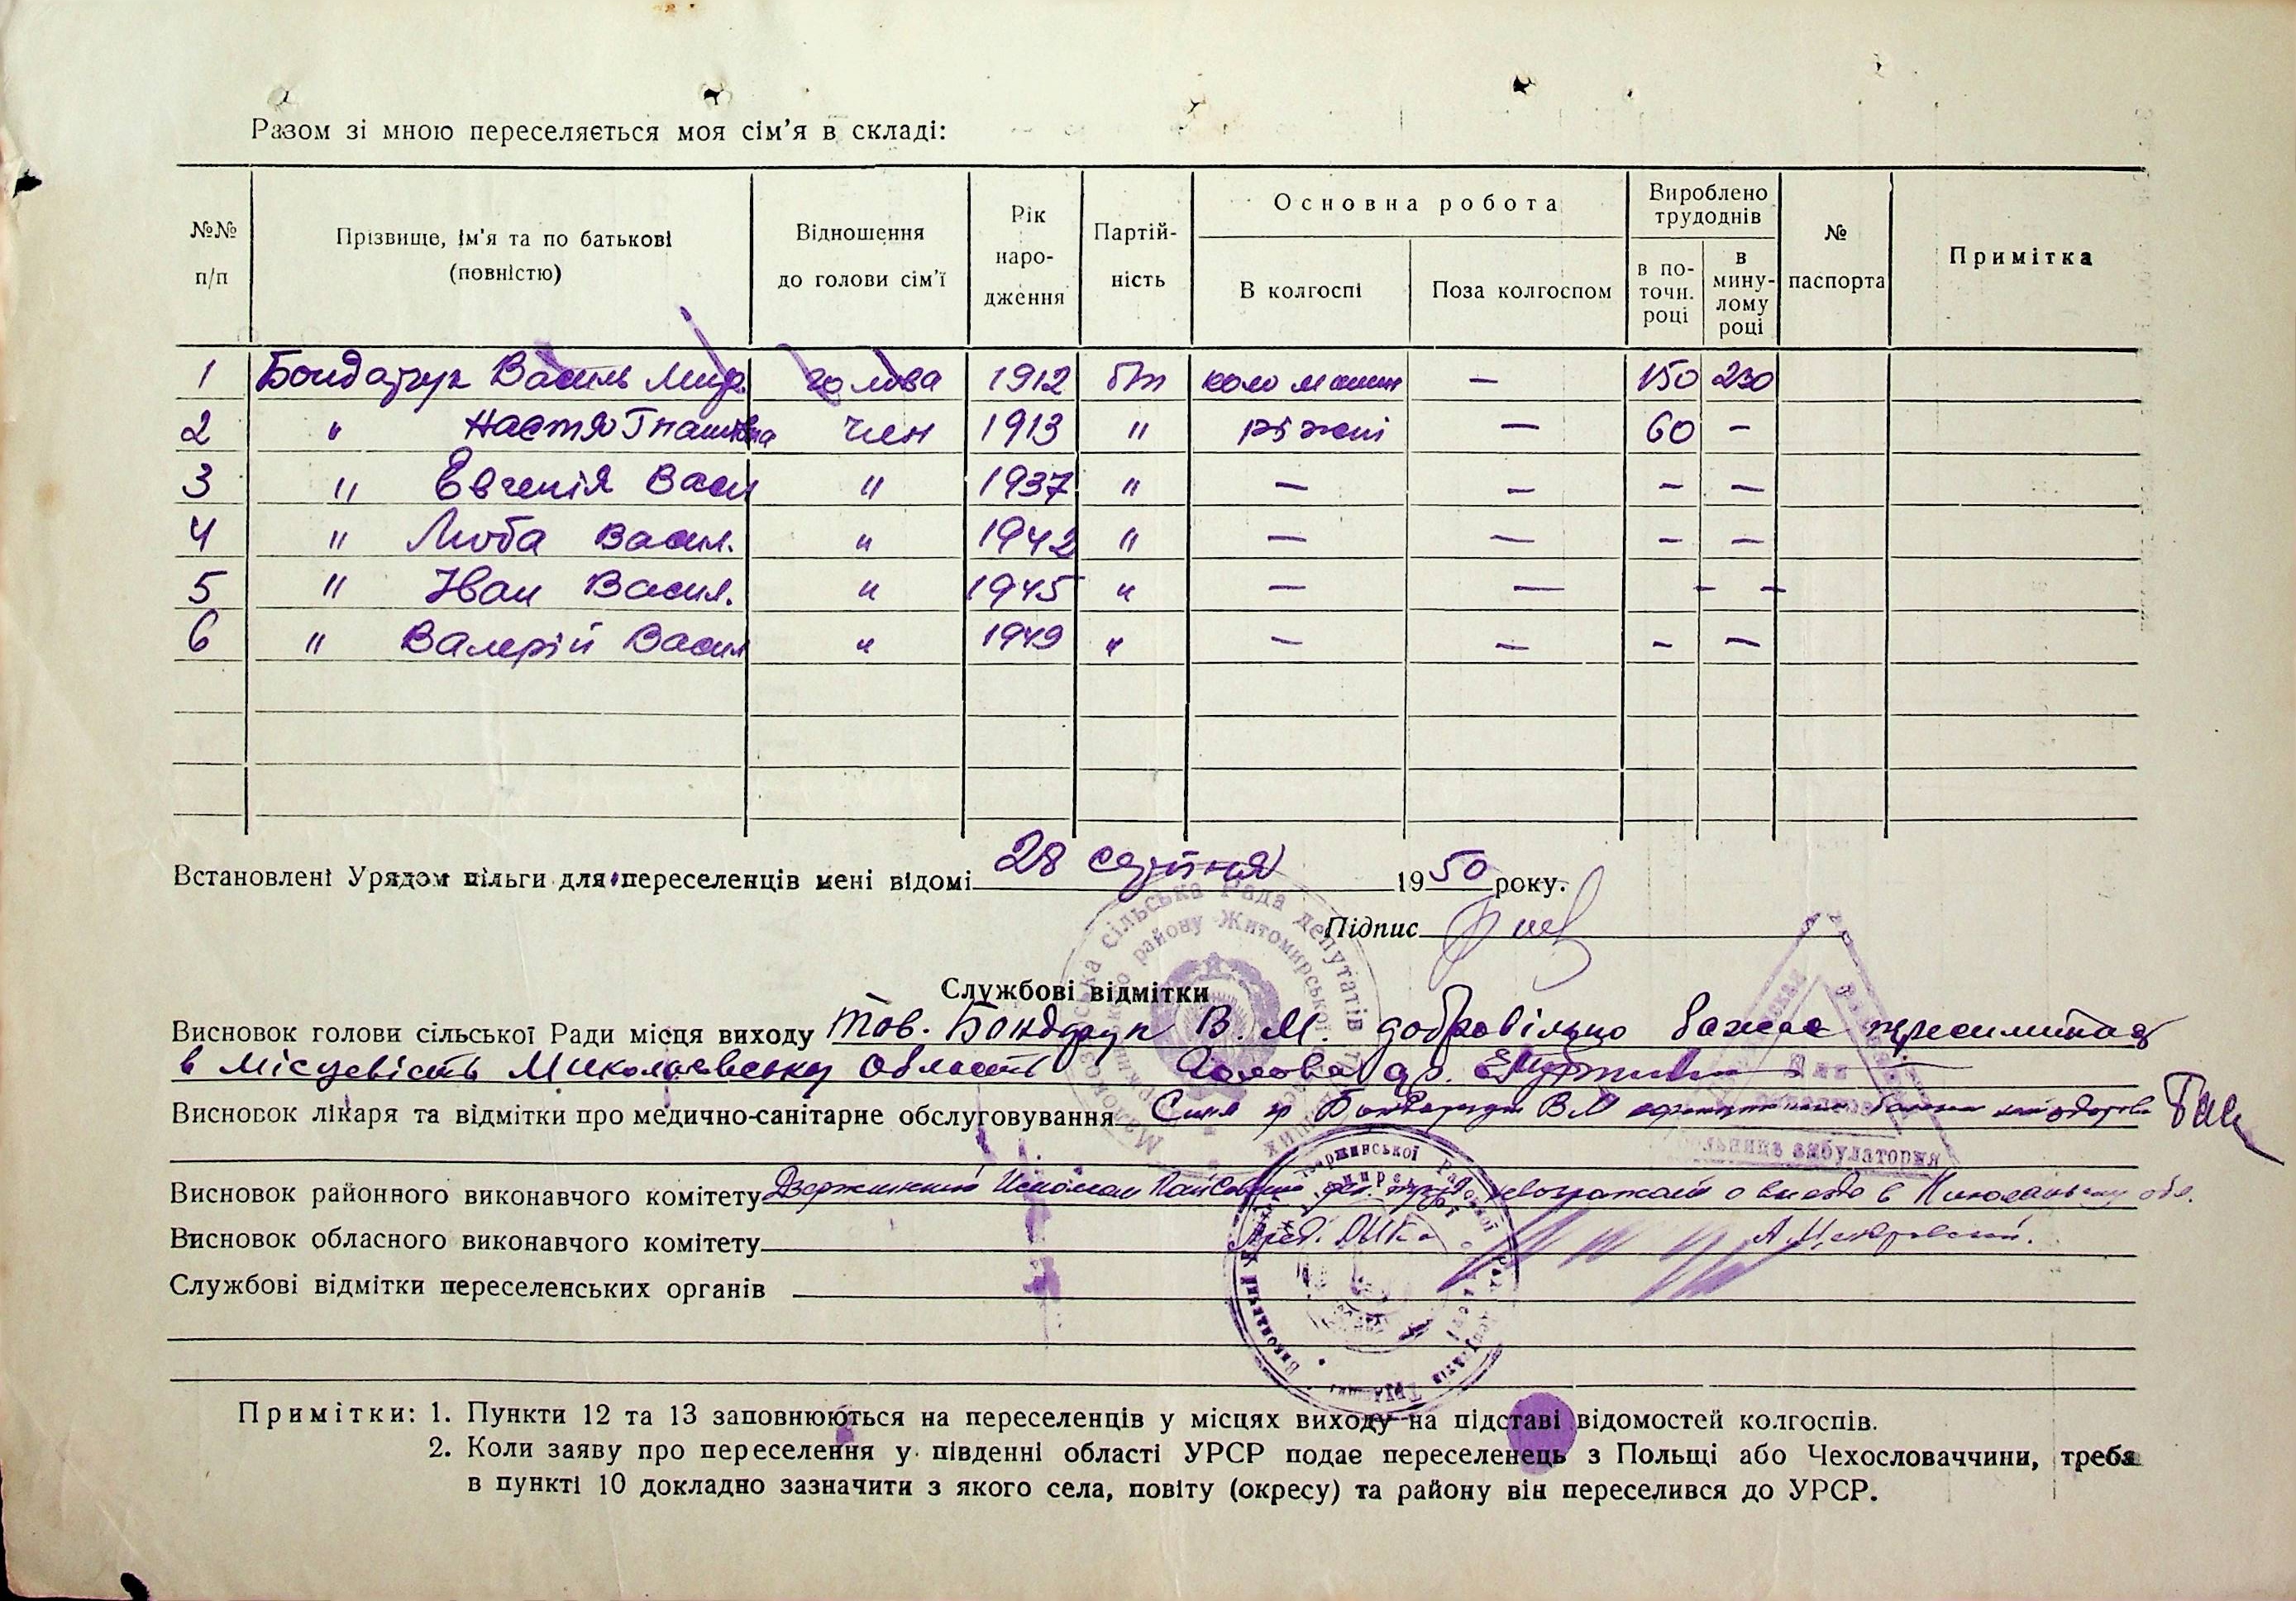 Разом зі мною переселяється моя сім'я в складі:
№№ п/п | Прізвище, ім'я та по батькові (повністю) | Відношення до голови сім'ї | Рік народження | Партійність | Основна робота | Вироблено трудоднів | № паспорта | Примітка
В колгоспі | Поза колгоспом | в поточн. році | в минулому році
1 Бондарук Василь Мир. голова 1912 б/п коло машин — 150 230
2 " Настя Гнатівна член 1913 " різні — 60 –
3 " Евгенія Васил " 1937 " — — – —
4 " Люба Васил. " 1942 " — — – —
5 " Іван Васил. " 1945 " — — – –
6 " Валерій Васил " 1949 " — — – —
Встановлені Урядом пільги для переселенців мені відомі 28 серпня 1950 року.
Підпис
Службові відмітки
Висновок голови сільської Ради місця виходу Тов. Бондарук В. М. добровільно бажає переселитися
в місцевість Миколаєвську область Голова
Висновок лікаря та відмітки про медично-санітарне обслуговування Бондарука В М
Висновок районного виконавчого комітету Дзержинский о выезде в Николаевскую обл.
Висновок обласного виконавчого комітету Пред.
Службові відмітки переселенських органів
Примітки: 1. Пункти 12 та 13 заповнюються на переселенців у місцях виходу на підставі відомостей колгоспів.
2. Коли заяву про переселення у південні області УРСР подає переселенець з Польщі або Чехословаччини, треба
в пункті 10 докладно зазначити з якого села, повіту (окресу) та району він переселився до УРСР.
сільська Рада депутатів
району Житомирської
амбулатория